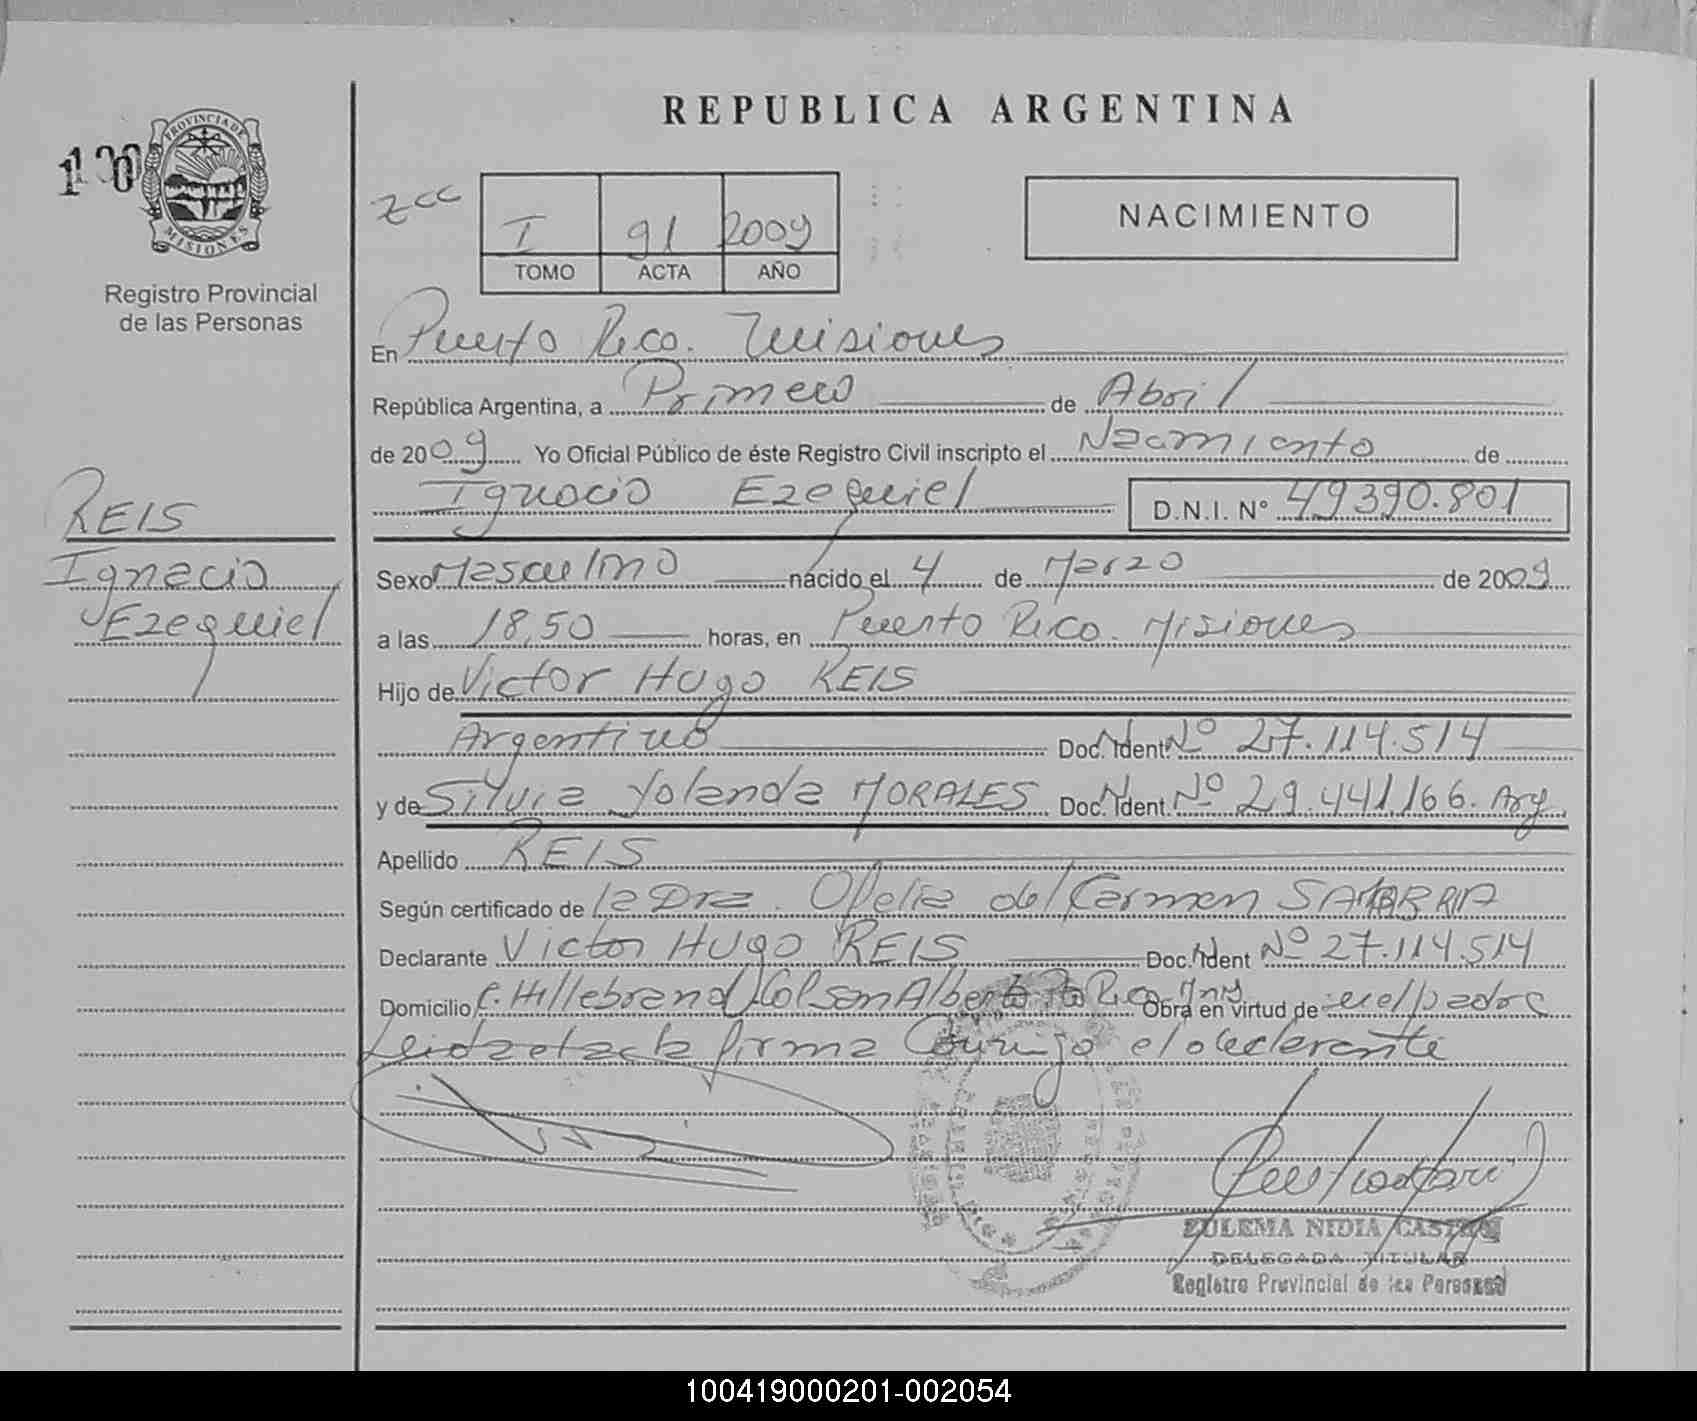 REPUBLICA ARGENTINA
PROVINCIA DE
MISIONES
Registro Provincial
de las Personas
zcc
I 91 2009
TOMO ACTA AÑO
NACIMIENTO
En Puerto Rico. Misiones
República Argentina, a Primero de Abril
de 2009 Yo Oficial Público de éste Registro Civil inscripto el Nacimiento de
Ignacio Ezequiel D.N.I. N° 49390.801
REIS
Ignacio
Ezequiel
Sexo Masculino nacido el 4 de Marzo de 2009
a las 18,50 horas, en Puerto Rico. Misiones
Hijo de Victor Hugo REIS
Argentino Doc. Ident. Nº 27.114.514
y de Silvia Yolanda MORALES Doc. Ident. Nº 29.441.166. Arg.
Apellido REIS
Según certificado de la Dra. Ofelia del Carmen
Declarante Victor HUgo REIS Doc. Ident Nº 27.114.514
Domicilio C. Hillebrand Col San Alberto Pto Rico Mns Obra en virtud de ser el padre
Leida el acta firma Conmigo el declarante
ZULEMA NIDIA
DELEGADA TITULAR
Registro Provincial de las Personas
100419000201-002054